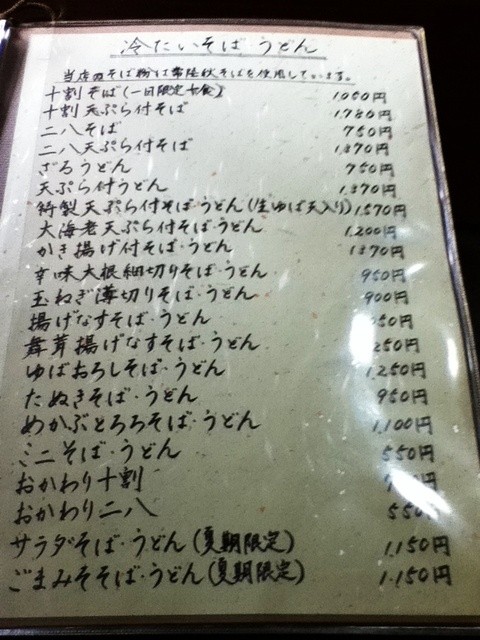 冷たいそば うどん
当店のそば粉は常陸秋そばを使用しています。
十割そば(一日限定 食) 1,050円
十割天ぷら付そば 1,780円
二八そば 750円
二八天ぷら付そば 1,370円
ざるうどん 750円
天ぷら付うどん 1,370円
特製天ぷら付そば・うどん(生ゆば天入り) 1,570円
大海老天ぷら付そば・うどん 1,200円
かき揚げ付そば・うどん 1,370円
辛味大根細切りそば・うどん 950円
玉ねぎ薄切りそば・うどん 900円
揚げなすそば・うどん 50円
舞茸揚げなすそば・うどん 250円
ゆばおろしそば・うどん 1,250円
たぬきそば・うどん 950円
めかぶとろろそば・うどん 1,100円
ミニそば・うどん 550円
おかわり十割 円
おかわり二八 550
サラダそば・うどん(夏期限定) 1,150円
ごまみそそば・うどん(夏期限定) 1,150円